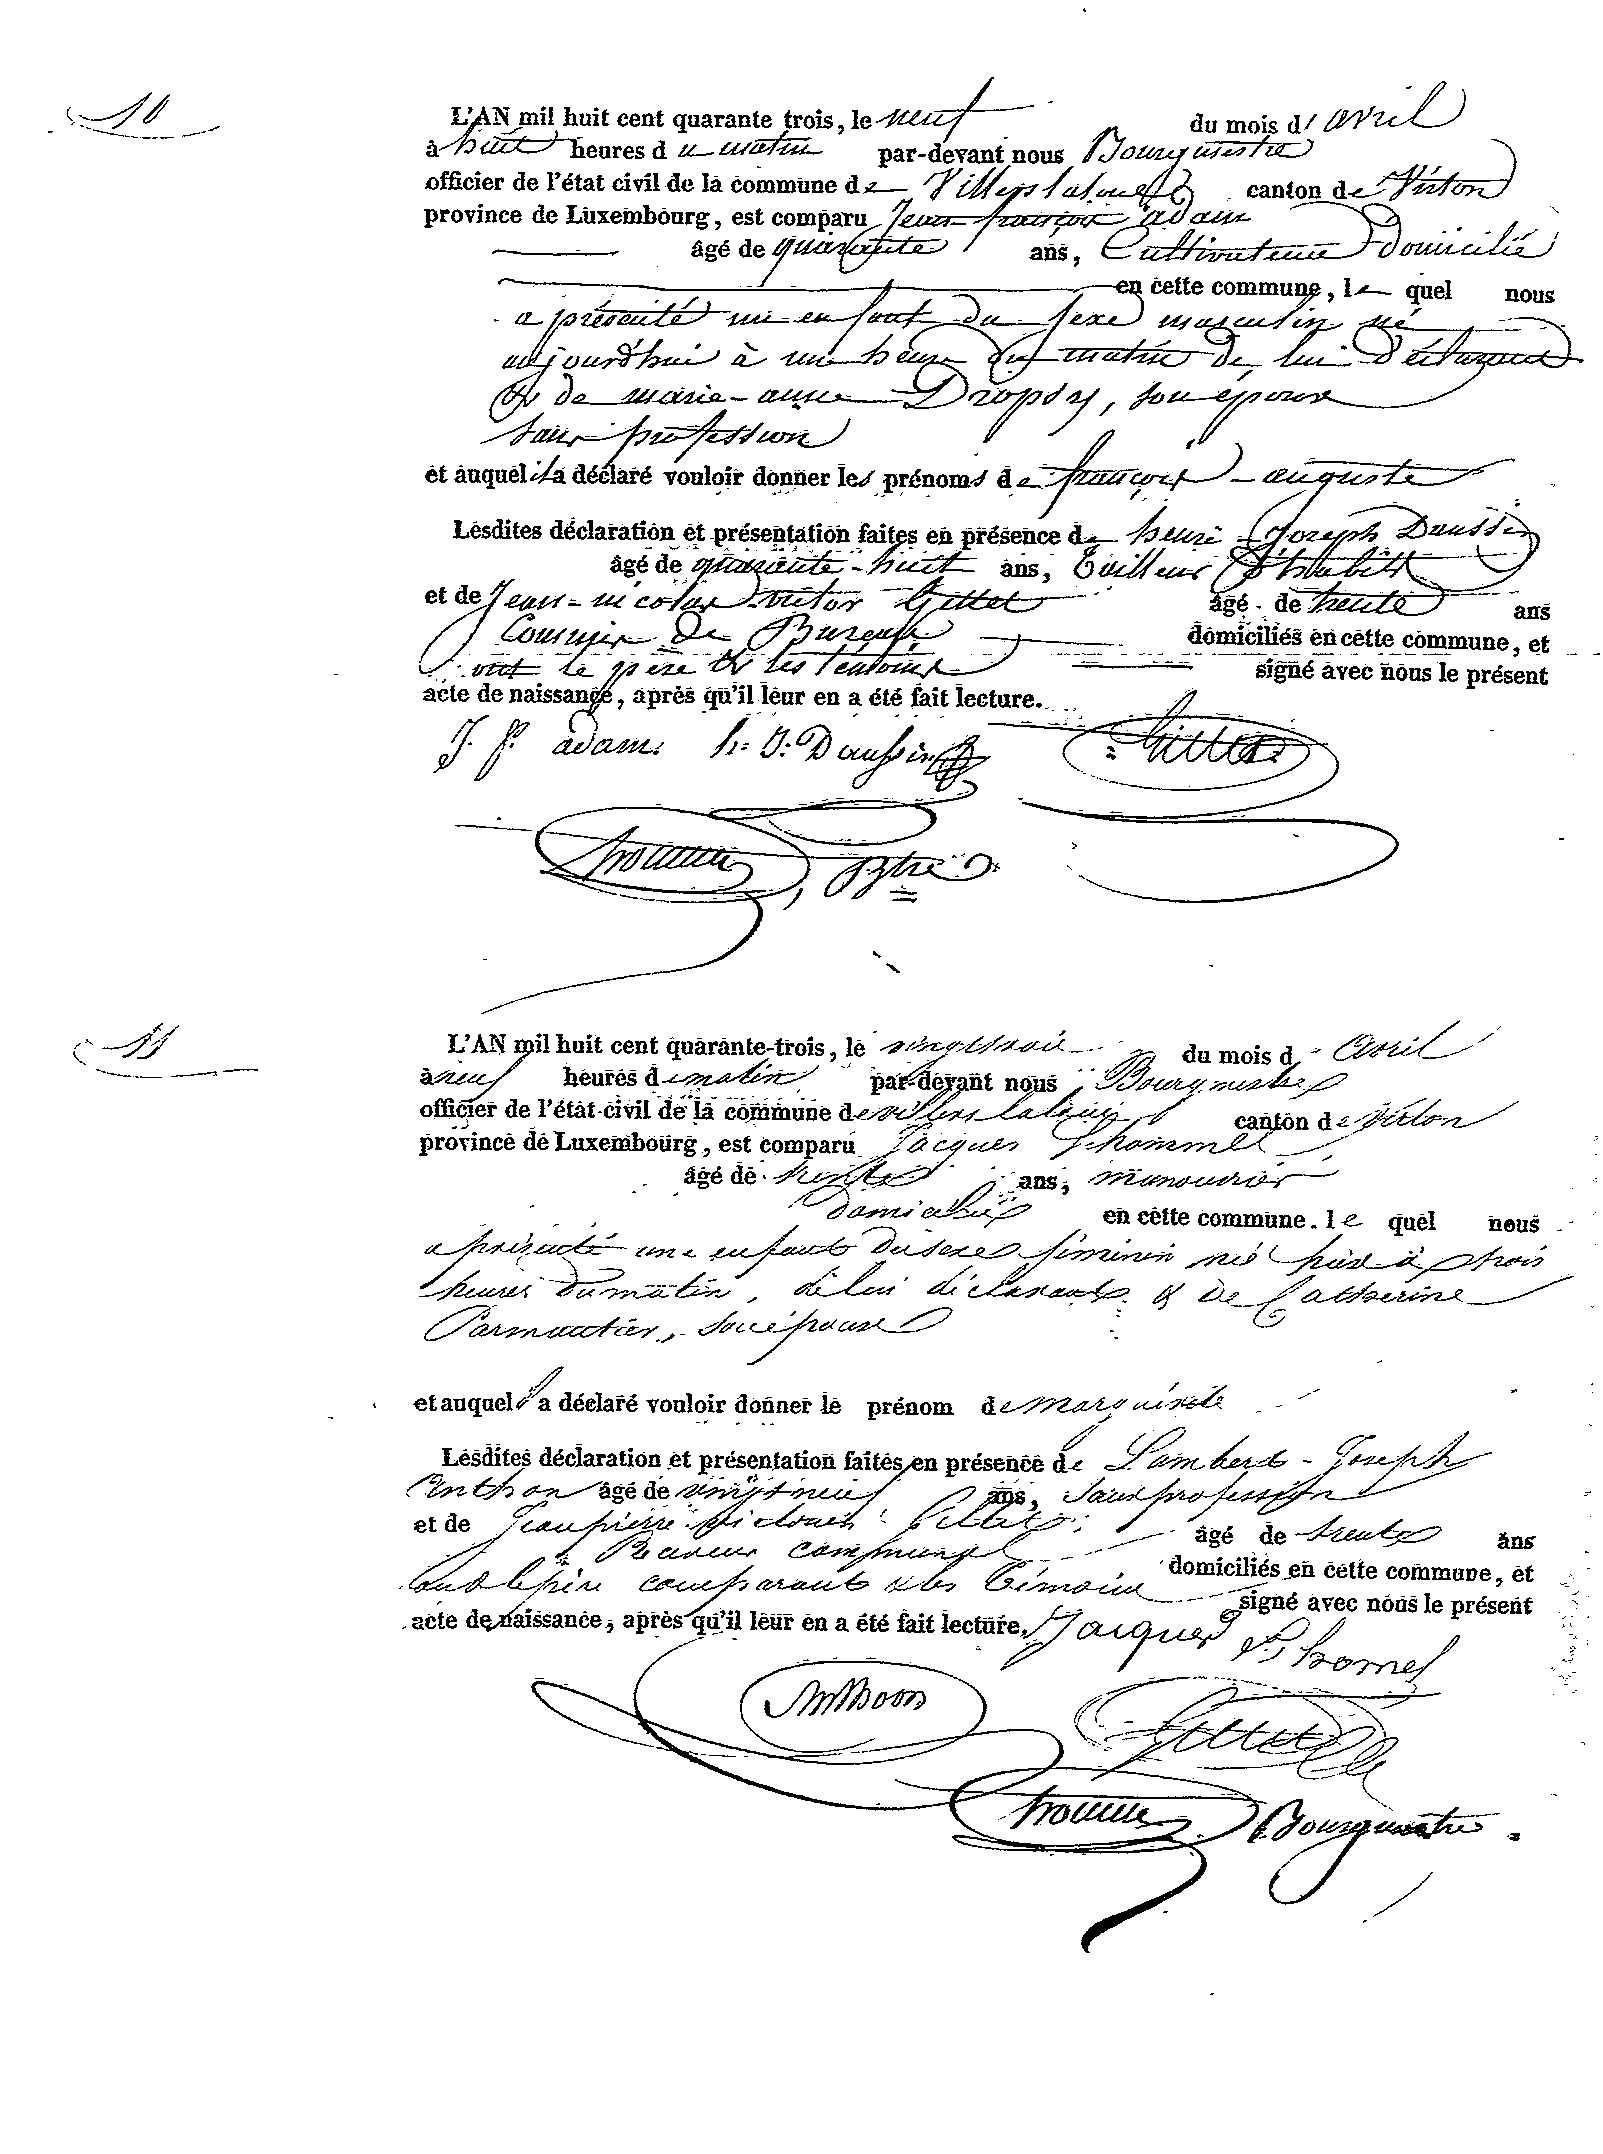 10
L'AN mil huit cent quarante trois, le neuf du mois d'avril
à huit heures du matin par-devant nous Bourgmestre
officier de l'état civil de la commune de Villers la loue canton de Virton
province de Luxembourg, est comparu Jean françois adam
âgé de quarante ans, Cultivateur Domicilié
en cette commune, le quel nous
a présenté un enfant du sexe masculin né
aujourd'hui à un heure du matin de lui Déclarant
& de marie-anne Dropsy, son épouse
sans profession
et auquel il a déclaré vouloir donner les prénoms de françois-auguste
Lesdites déclaration et présentation faites en présence de henri-Joseph Daussin
âgé de quarante-huit ans, Tailleur
et de Jean-nicolas victor Gillet âgé de trente ans
domiciliés en cette commune, et
ont le père & les témoins signé avec nous le présent
acte de naissance, après qu'il leur en a été fait lecture.
J. f. adam h. J. Daussin Gillet
11
L'AN mil huit cent quarante-trois, le vingt trois du mois d'avril
à neuf heures du matin par-devant nous Bourgmestre
officier de l'état civil de la commune de villers la loue canton de Virton
province de Luxembourg, est comparu Jacques Thommel
âgé de trente ans, manouvrier
domicilié en cette commune. le quel nous
a présenté une enfant du sexe féminin né hier à trois
heures du matin, de lui déclarant & de Catherine
Parmantier, son épouse
et auquel il a déclaré vouloir donner le prénom de
Lesdites déclaration et présentation faites en présence de Lambert-Joseph
Anthon âgé de vingt neuf ans, sans profession
et de Jean pierre victoir Gillet âgé de trente ans
Receveur communal domiciliés en cette commune, et
ont le père comparant & les témoins signé avec nous le présent
acte de naissance, après qu'il leur en a été fait lecture. Jacques Thomel
Anthoon Gillet
Bourgmestre